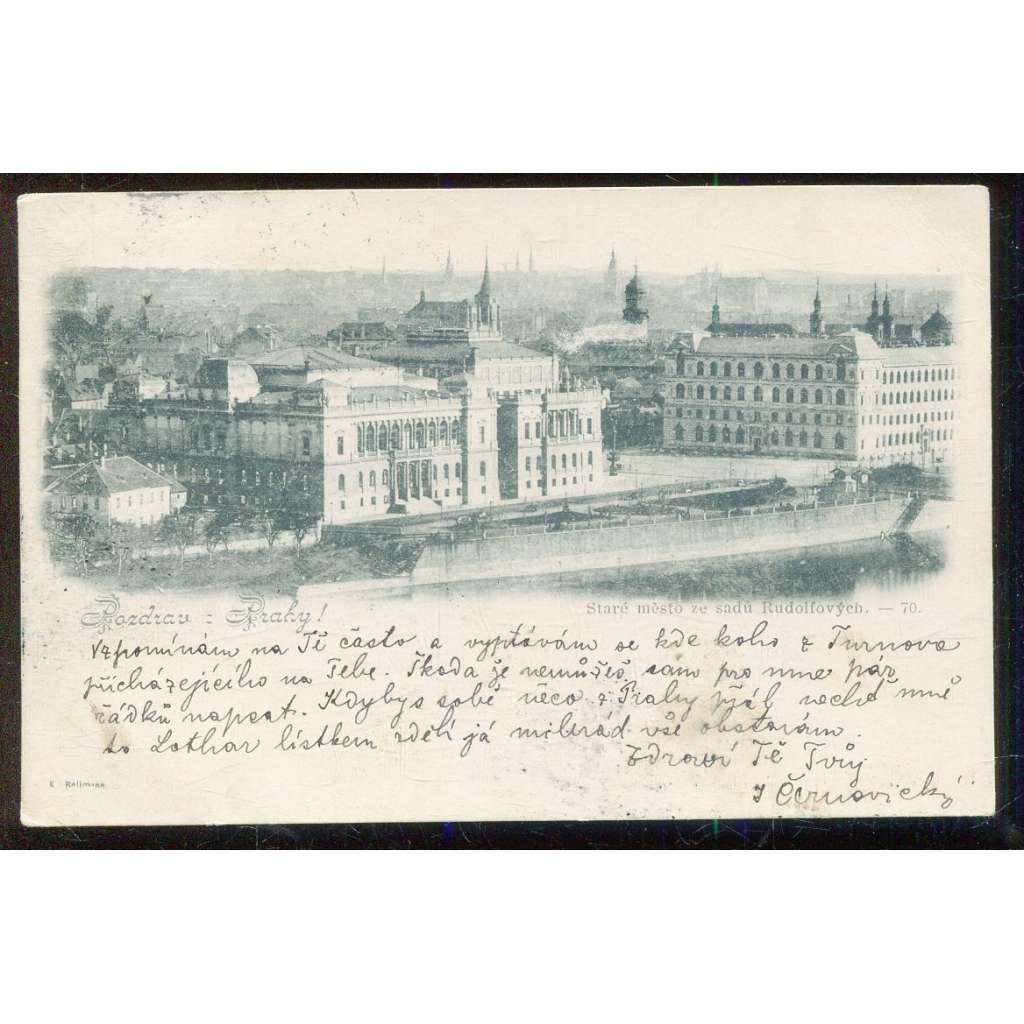 Pozdrav z Prahy!
Staré město ze sadů Rudolfových. — 70.
Vzpomínám na Tě často a vyptávám se kde koho z Turnova
přicházejícího na Tebe. Škoda že nemůžeš sám pro mne pár
řádků napsat. Kdybys sobě něco z Prahy přál nechť mně
to Lothar lístkem zdělí já milerád vše obstarám.
Zdraví Tě Tvůj
J Černovický